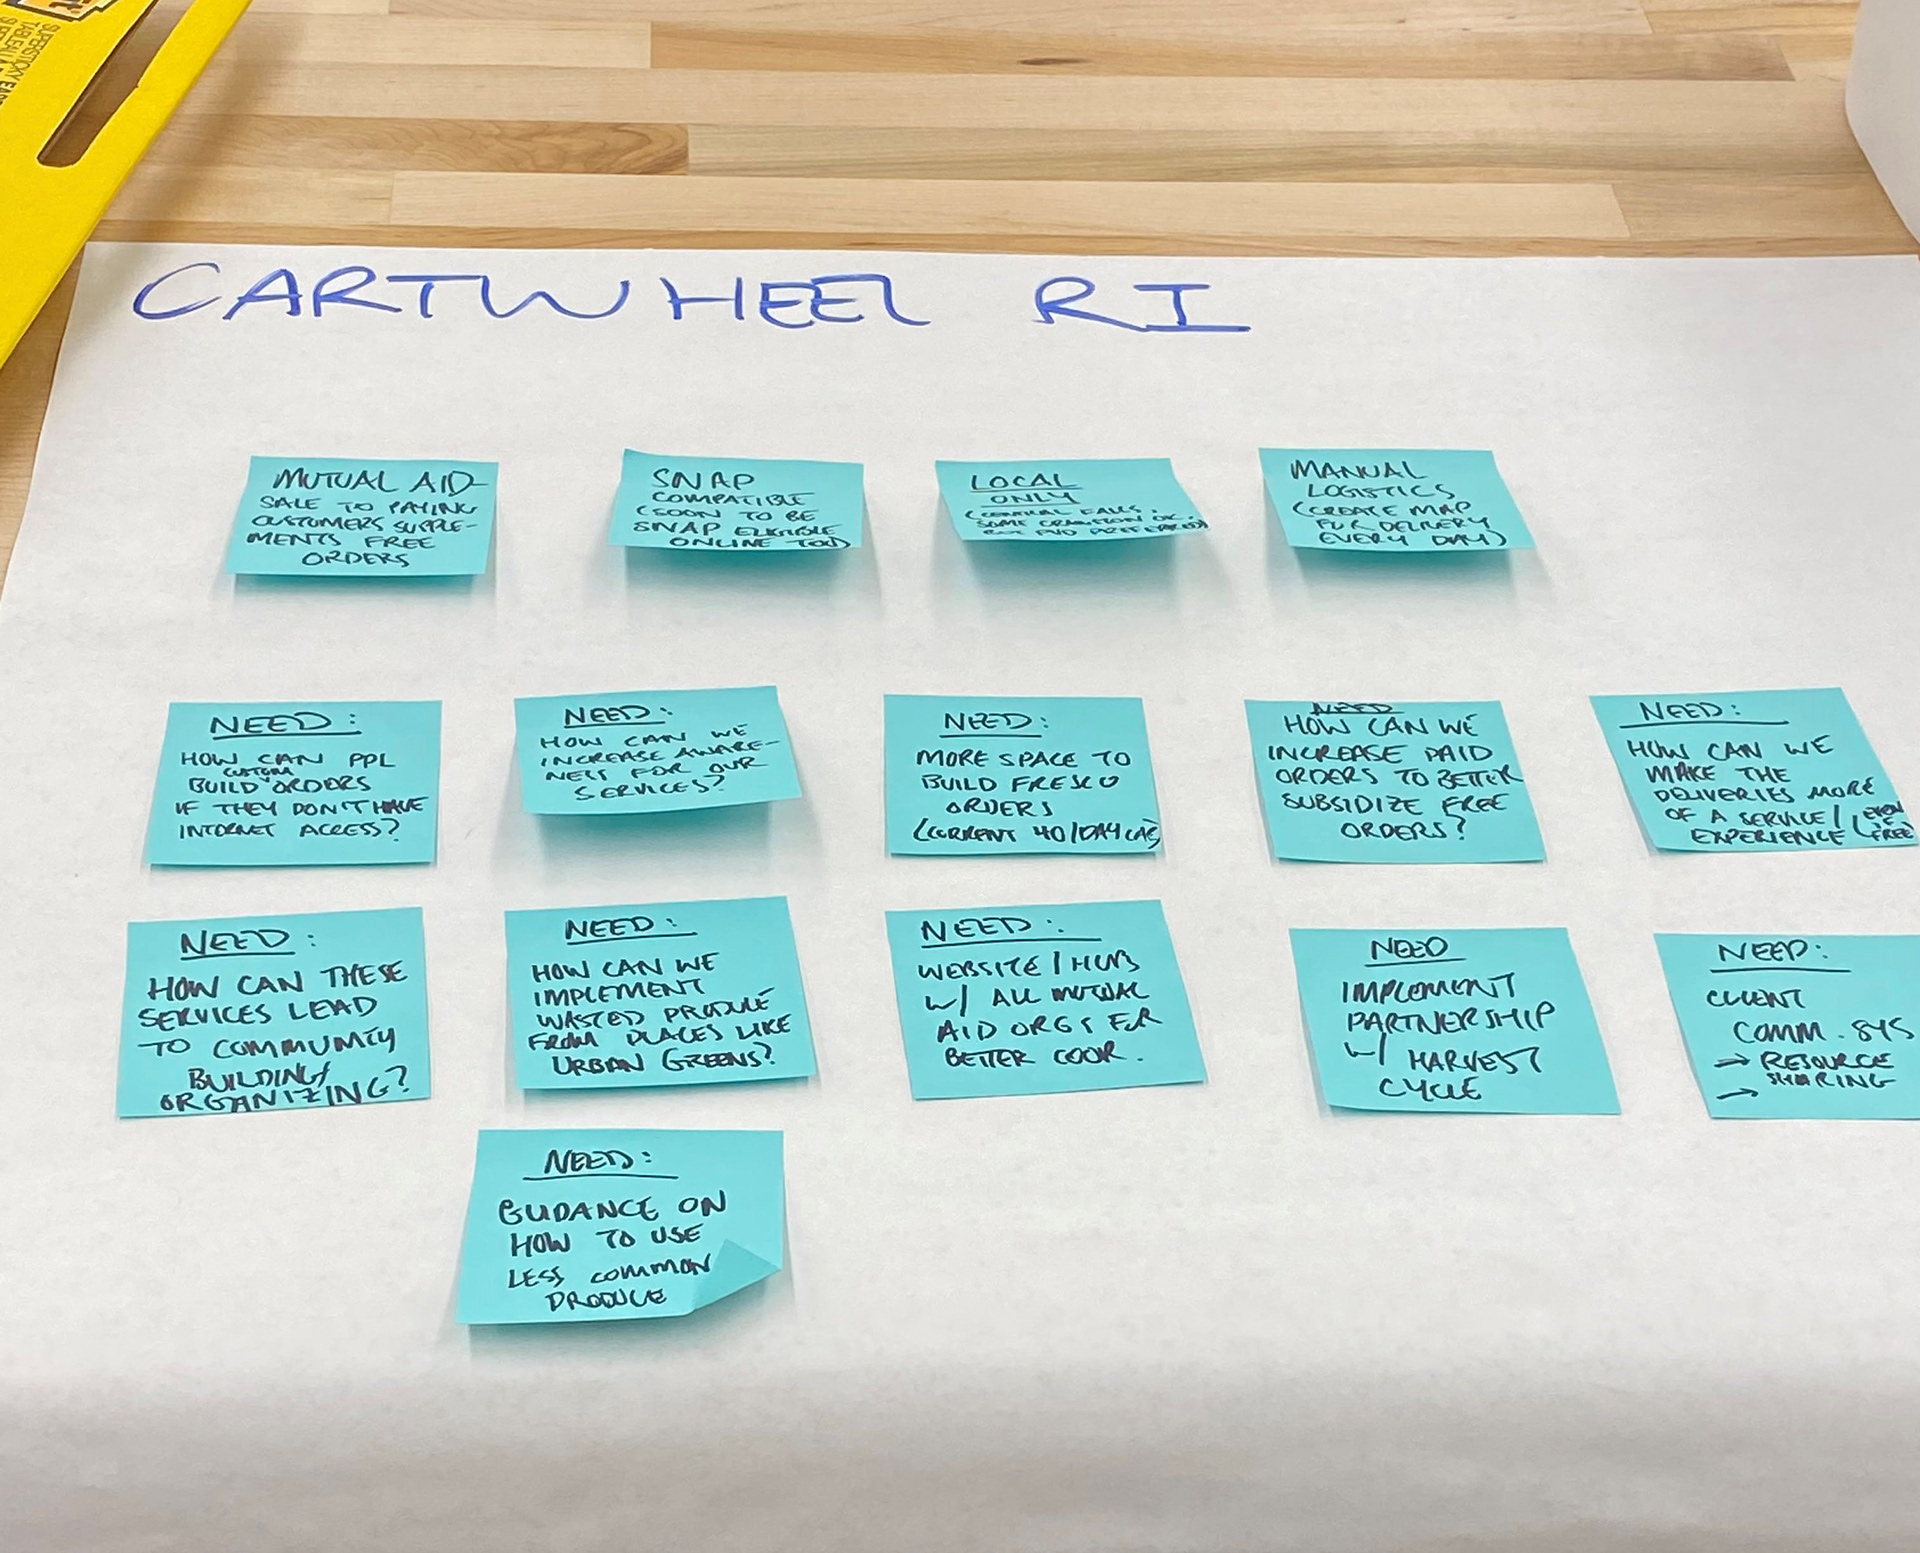 SUPERSTICKY
CARTWHEEL RI
MUTUAL AID
SALE TO PAYING
CUSTOMERS SUPPLE-
MENTS FREE
ORDERS
SNAP
COMPATIBLE
(SOON TO BE
SNAP ELIGIBLE
ONLINE TOO)
LOCAL
ONLY
(CENTRAL FALLS,
SOME CRANSTON OK,
BUT PVD PREFERRED)
MANUAL
LOGISTICS
(CREATE MAP
FUR DELIVERY
EVERY DAY)
NEED:
HOW CAN PPL
CUSTOM
BUILD ORDERS
IF THEY DON'T HAVE
INTERNET ACCESS?
NEED:
HOW CAN WE
INCREASE AWARE-
NESS FOR OUR
SERVICES?
NEED:
MORE SPACE TO
BUILD FRESCO
ORDERS
(CURRENT 40/DAY CAP)
NEED
HOW CAN WE
INCREASE PAID
ORDERS TO BETTER
SUBSIDIZE FREE
ORDERS?
NEED:
HOW CAN WE
MAKE THE
DELIVERIES MORE
OF A SERVICE/
EXPERIENCE (EVEN IF FREE)
NEED:
HOW CAN THESE
SERVICES LEAD
TO COMMUNITY
BUILDING/
ORGANIZING?
NEED:
HOW CAN WE
IMPLEMENT
WASTED PRODUCE
FROM PLACES LIKE
URBAN GREENS?
NEED:
WEBSITE / HUB
W/ ALL MUTUAL
AID ORGS FOR
BETTER COOR.
NEED
IMPLEMENT
PARTNERSHIP
W/ HARVEST
CYCLE
NEED:
CLIENT
COMM. SYS
→ RESOURCE
→ SHARING
NEED:
GUIDANCE ON
HOW TO USE
LESS COMMON
PRODUCE